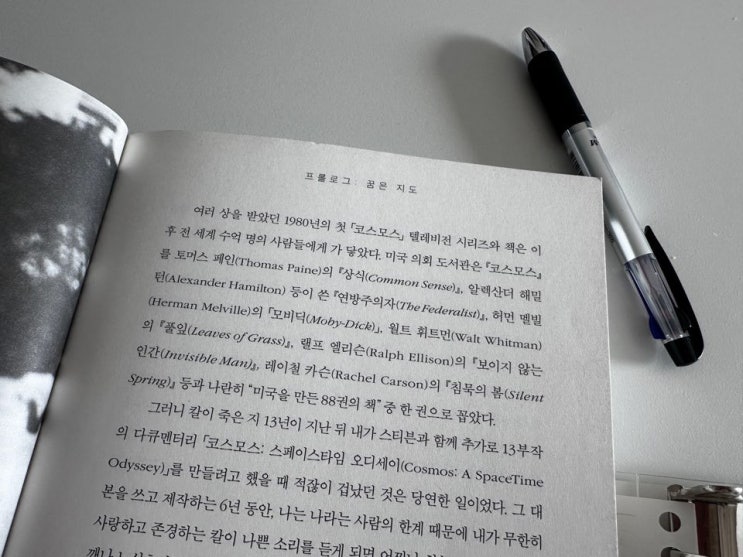 프롤로그: 꿈은 지도
여러 상을 받았던 1980년의 첫 「코스모스」 텔레비전 시리즈와 책은 이
후 전 세계 수억 명의 사람들에게 가 닿았다. 미국 의회 도서관은 『코스모스』
를 토머스 페인(Thomas Paine)의 『상식(Common Sense)』, 알렉산더 해밀
턴(Alexander Hamilton) 등이 쓴 『연방주의자(The Federalist)』, 허먼 멜빌
(Herman Melville)의 「모비딕(Moby-Dick)」, 월트 휘트먼(Walt Whitman)
의 『풀잎(Leaves of Grass)』, 랠프 엘리슨(Ralph Ellison)의 『보이지 않는
인간(Invisible Man)』, 레이철 카슨(Rachel Carson)의 『침묵의 봄(Silent
Spring)』 등과 나란히 “미국을 만든 88권의 책” 중 한 권으로 꼽았다.
그러니 칼이 죽은 지 13년이 지난 뒤 내가 스티븐과 함께 추가로 13부작
의 다큐멘터리 「코스모스: 스페이스타임 오디세이(Cosmos: A SpaceTime
Odyssey)」를 만들려고 했을 때 적잖이 겁났던 것은 당연한 일이었다. 그 대
본을 쓰고 제작하는 6년 동안, 나는 나라는 사람의 한계 때문에 내가 무한히
사랑하고 존경하는 칼이 나쁜 소리를 듣게 되면